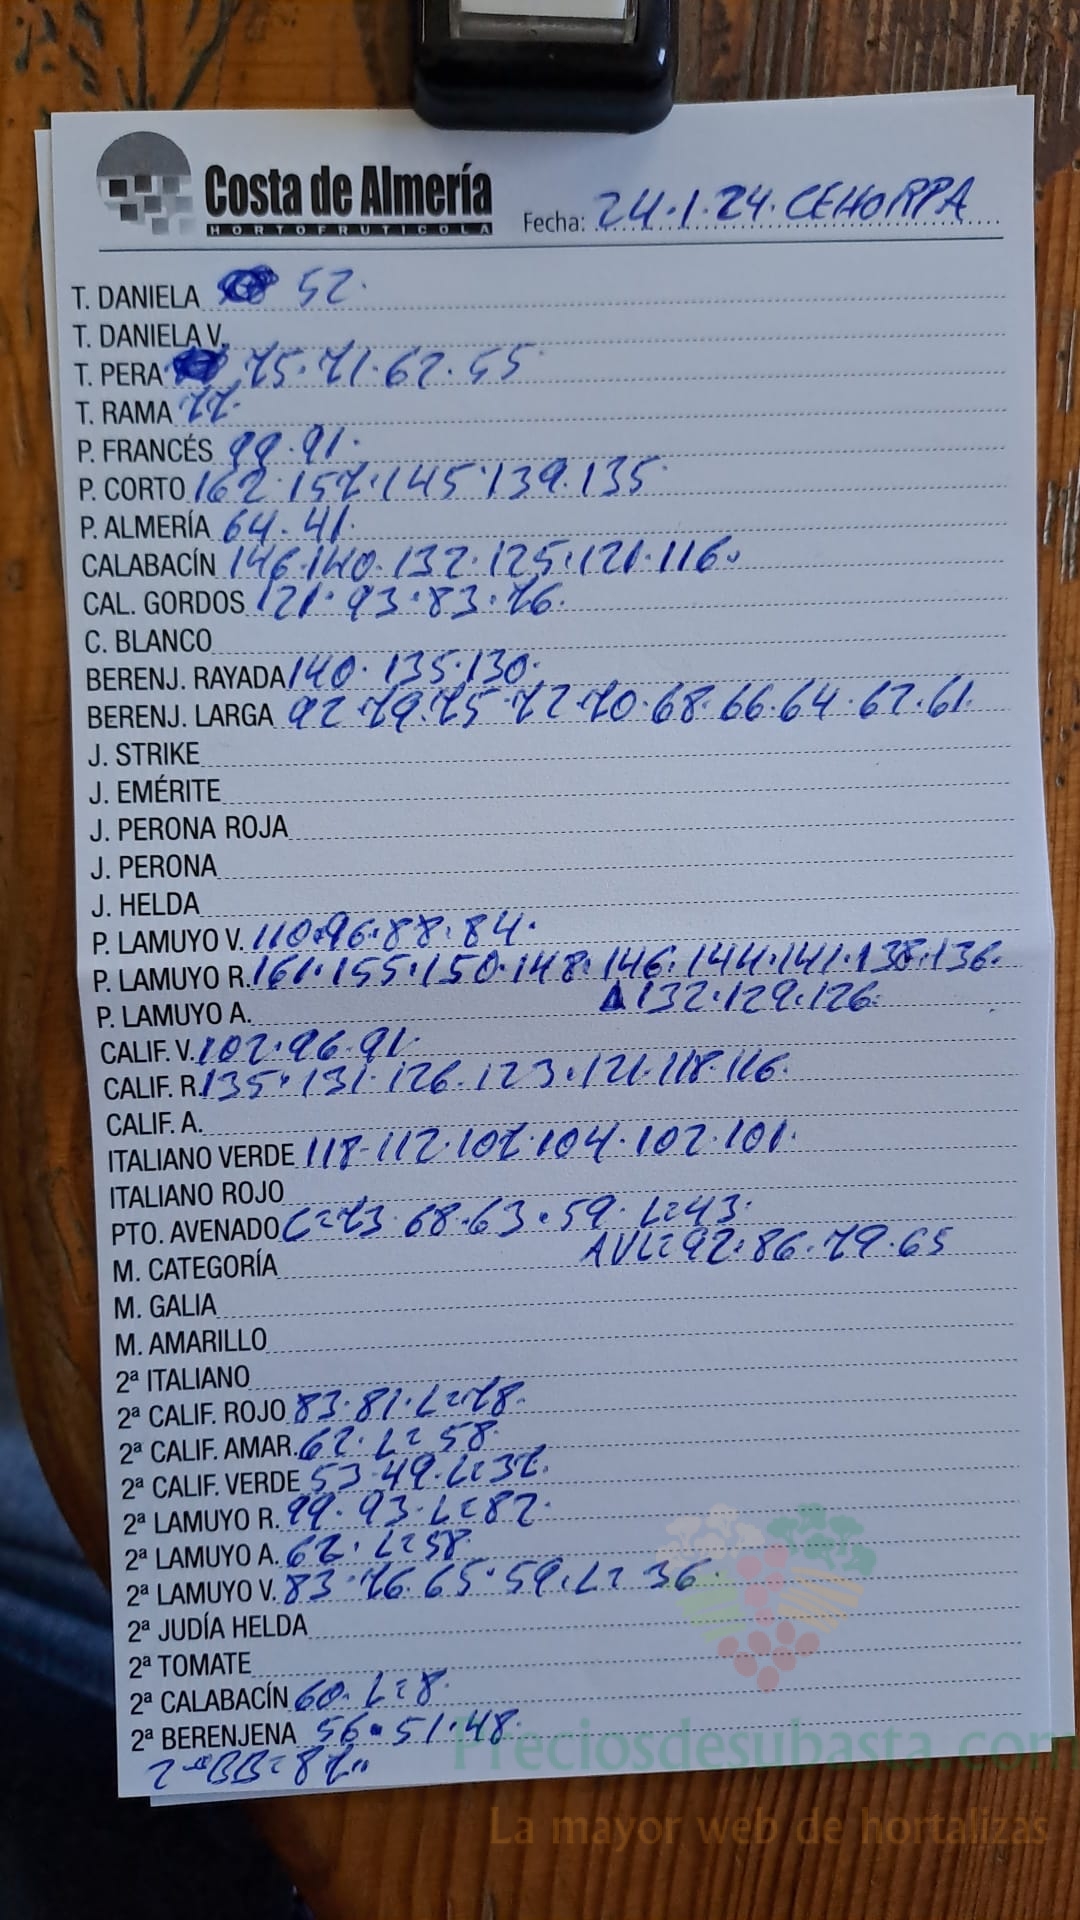 Costa de Almería
HORTOFRUTICOLA
Fecha: 24·1·24· CEHORPA
T. DANIELA 52·
T. DANIELA V.
T. PERA 75·71·62·55
T. RAMA 77·
P. FRANCÉS 99·91·
P. CORTO 162·157·145·139·135
P. ALMERÍA 64·41·
CALABACÍN 146·140·132·125·121·116·
CAL. GORDOS 121·93·83·76·
C. BLANCO
BERENJ. RAYADA 140·135·130·
BERENJ. LARGA 92·79·75·72·70·68·66·64·62·61·
J. STRIKE
J. EMÉRITE
J. PERONA ROJA
J. PERONA
J. HELDA
P. LAMUYO V. 110·96·88·84·
P. LAMUYO R. 161·155·150·148·146·144·141·138·136·
132·129·126·
P. LAMUYO A.
CALIF. V. 102·96·91·
CALIF. R. 135·131·126·123·121·118·116·
CALIF. A.
ITALIANO VERDE 118·112·107·104·102·101·
ITALIANO ROJO
PTO. AVENADO C=73·68·63·59·L=43·
AVL=92·86·79·65
M. CATEGORÍA
M. GALIA
M. AMARILLO
2ª ITALIANO
2ª CALIF. ROJO 83·81·L=78·
2ª CALIF. AMAR. 62·L=58·
2ª CALIF. VERDE 53·49·L=37·
2ª LAMUYO R. 99·93·L=82·
2ª LAMUYO A. 62·L=58·
2ª LAMUYO V. 83·76·65·59·L=36·
2ª JUDÍA HELDA
2ª TOMATE
2ª CALABACÍN 60·L=8·
2ª BERENJENA 56·51·48·
2ªBB=87··
Preciosdesubasta.com
La mayor web de hortalizas